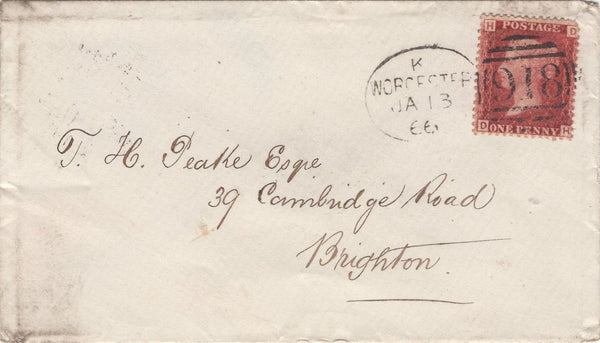 H D
POSTAGE
918
D H
ONE PENNY
K
WORCESTER
JA 13
66
T. H. Peake Esqre
39 Cambridge Road
Brighton.